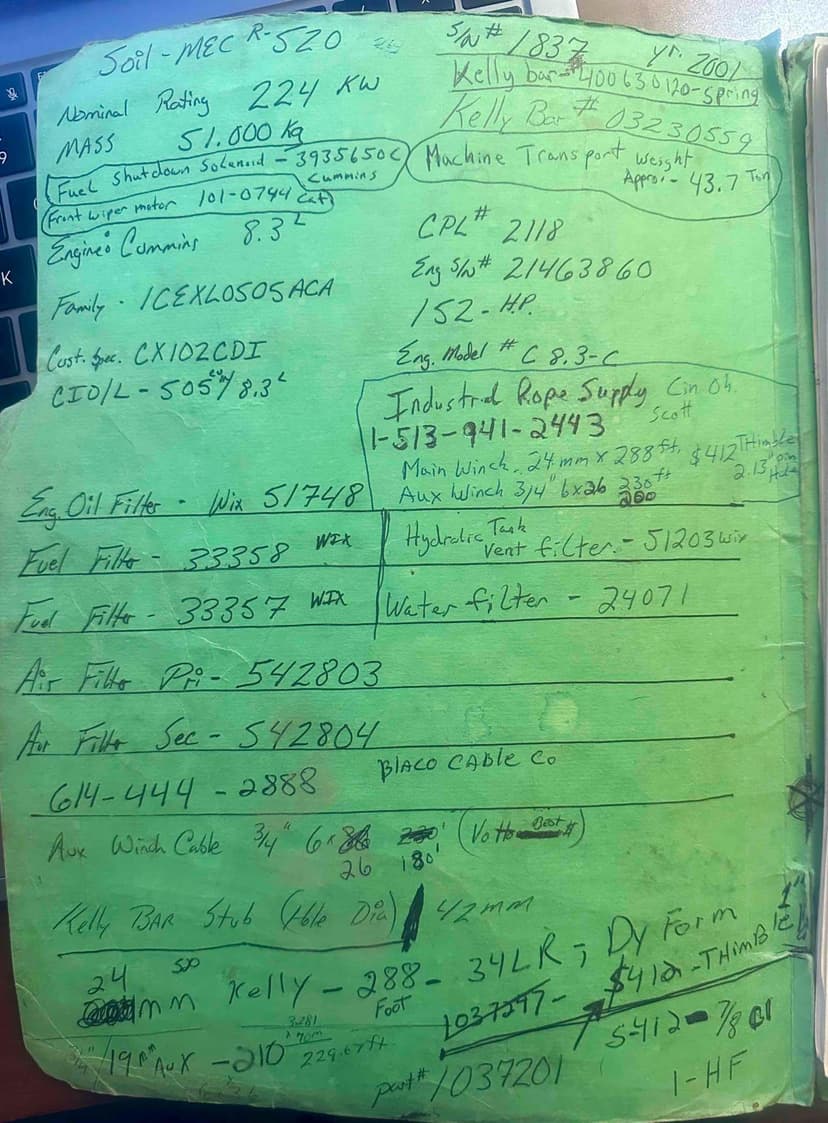 Soil-MEC R-520
S/N# 1837 yr. 2001
Kelly bar-#400630120-Spring
Nominal Rating 224 KW
Kelly Bar # 03230559
MASS 51.000 Kg
Machine Transport Weight
Approx.- 43.7 Ton
Fuel Shutdown Solenoid - 3935650C
Cummins
Front wiper motor 101-0744 Cat
Engine: Cummins 8.3 L
CPL# 2118
Eng S/N# 21463860
Family - 1CEXL0505ACA
152-H.P.
Cust. Spec. CX102CDI
Eng. Model # C 8.3-C
CID/L - 505 / 8.3 L
Industrial Rope Supply Cin Oh.
Scott
1-513-941-2443
Main Winch - 24mm x 288 ft. $412 THimble
2.13" pin Hole
Aux Winch 3/4" 6x26 230 ft
200
Eng. Oil Filter - Wix 51748
Fuel Filter - 33358 WIX
Hydrolic Tank
Vent filter - 51203 wix
Fuel Filter - 33357 WIX
Water filter - 24071
Air Filter Pri - 542803
Air Filter Sec - 542804
614-444-2888 BlACO CABle Co
Aux Winch Cable 3/4" 6x 230' (Best $)
26 180'
Kelly BAR Stub (Hole Dia) 42mm
24 mm Kelly - 288 - 34LR; Dy Form
Foot
1"
1037297- $412-THimBle
S-412-7/8
3/4" / 19mm AuX - 210
3281
x 70m
229.67ft
6 x 26
part# 1037201
1-HF